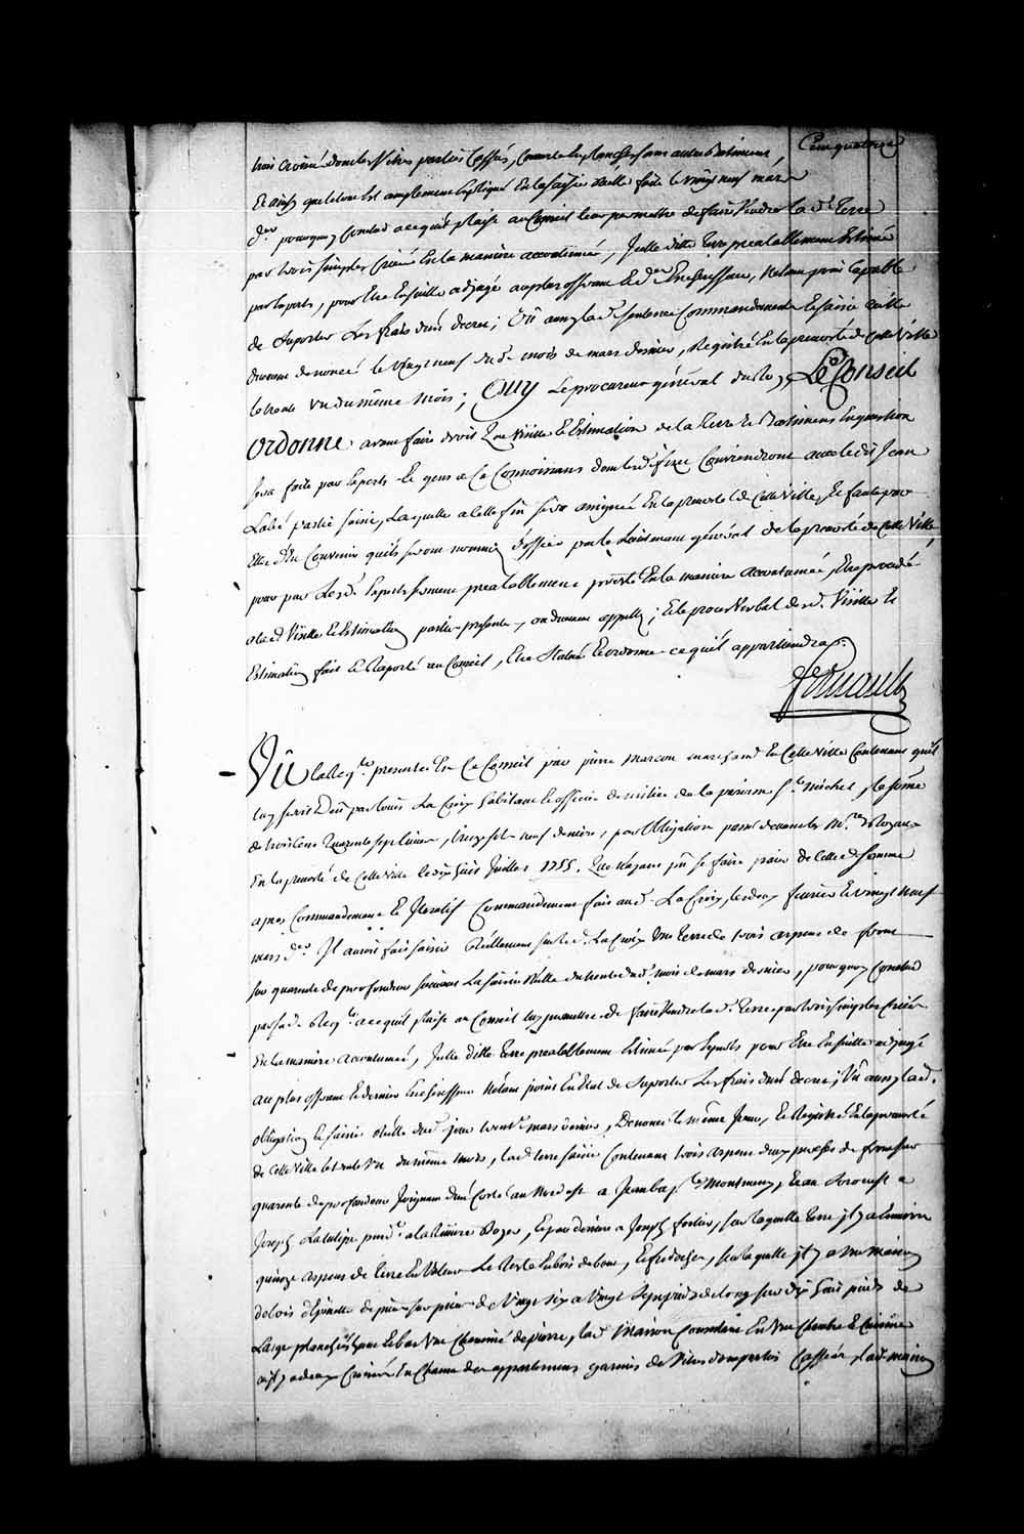 Cinquatrieme
trois croisés dont les Vitres partie Cassés, Couverte de planches sans autre Batiment
Et ainsy que le tout Est amplement Expliqué En la saisie réelle faite le vingt neuf mars
d.er pourquoy Conclud a ce qu'il plaise au Conseil leur permettre de faire Vendre lad.e Terre
par trois simples Criées En la maniere accoutumée, Icelle ditte Terre prealablement Estimée
par Experts, pour Etre Ensuitte adjugé au plus offrant et d.er Encherisseur, Netant point Capable
de Suporter Les frais d'un decret; Vû aussy lad.e sentence Commandement et saisie réelle
dument denoncé le vingt neuf dud.t mois de mars dernier, Registré En la prevosté de Cette Ville
le trente Un du même mois; Ouy Le procureur général du Roy, Le Conseil
Ordonne avant faire droit Que Visitte et Estimation de la Terre et Batimens En question
Sera faite par Experts et gens a Ce Connoissans dont led.t Conviendront avec led.t Jean
Labé partie saisie, Laquelle a cette fin sera assignée En la prevosté de Cette Ville, et faute par
Elle d'En Convenir qu'ils seront nommés d'office par le Lieutenant général de la prevosté de Cette Ville
pour par Lesd. Experts serment prealablement presté En la maniere accoutumée, Etre procedé
a lad. Visitte et Estimation parties presentes, ou duement appellés; Et le proces Verbal desd. Visitte et
Estimation fait et Raporté au Conseil, Etre Statué et ordonné ce qu'il appartiendra.
Vû la Req.te presentée En Ce Conseil par pierre Marcou marchand En Cette Ville Contenant qu'il
luy seroit Dû par Louis La Croix habitant et officier de milice de la paroisse S.t Michel, la somme
de trois Cent Quarente sept livres, treize sols neuf deniers, par Obligation passé devant
En la prevosté de Cette Ville le dix huit Juillet 1755. Que N'ayant pu se faire païer de Cette d. Somme
apres Commandement et Iteratif Commandement fait aud. La Croix, les deux fevrier et vingt neuf
mars d.er Il auroit fait saisir réellement sur led. La Croix Une terre de trois arpens de front
sur quarente de profondeur suivant La saisie réelle du trente dud.t mois de mars dernier, pourquoy Conclud
par sad. Req.te a ce qu'il plaise au Conseil luy permettre de faire Vendre lad.e Terre par trois simples Criées
En la maniere accoutumée, Icelle ditte Terre prealablement Estimée par Experts pour Etre Ensuitte adjugé
au plus offrant et dernier Encherisseur Netant point En Etat de Suporter Les frais d'un decret; Vû aussy lad.
obligation et saisie réelle dud. jour trente mars dernier, Denoncé le même Jour, et Registré En la prevosté
de Cette Ville le trente Un du même mois, lad. terre saisie Contenant trois arpens deux perches de front sur
quarente de profondeur Joignant d'un Costé au Nord est a Jean Bap.te Montmeny, Et au Sorouest a
Joseph Latulipe par d.t a la Riviere Boyer, Et par deriere a Joseph fortier, sur laquelle terre il y a Environ
quinze arpens de terre En Valeur Le Reste En bois de bout, Et fredoches, sur laquelle il y a Une maison
de bois d'Epinette de piece sur piece de Vingt six a Vingt sept pieds de long sur dix huit pieds de
Large planchéé haut et bas Une Cheminée de pierre, lad. Maison Consistant En Une Chambre et Cuisine
ou il y a deux Croisées En Chacun des appartemens garnis de Vitres dont partie Cassées, lad. maison